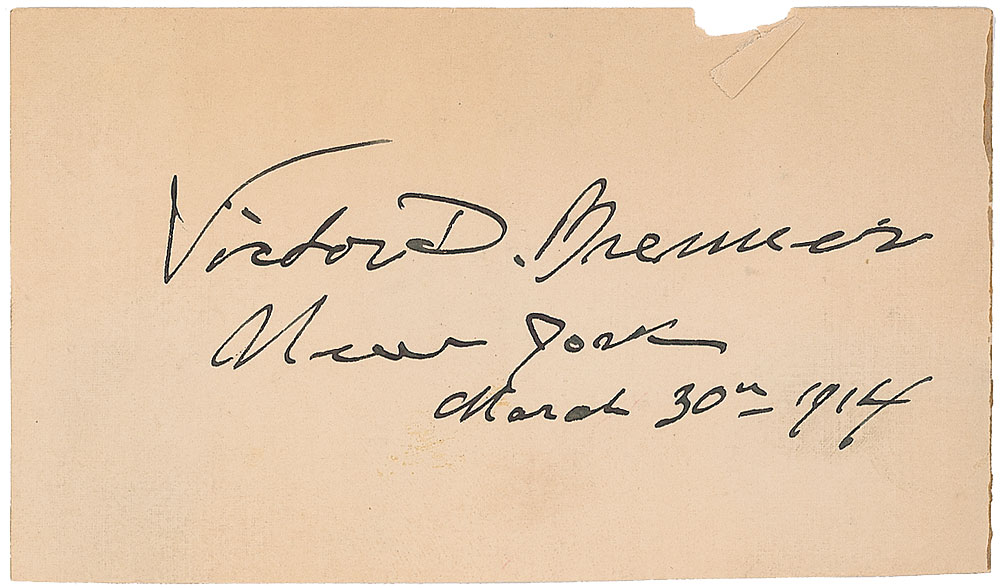 Victor D. Brenner
New York
March 30th 1914